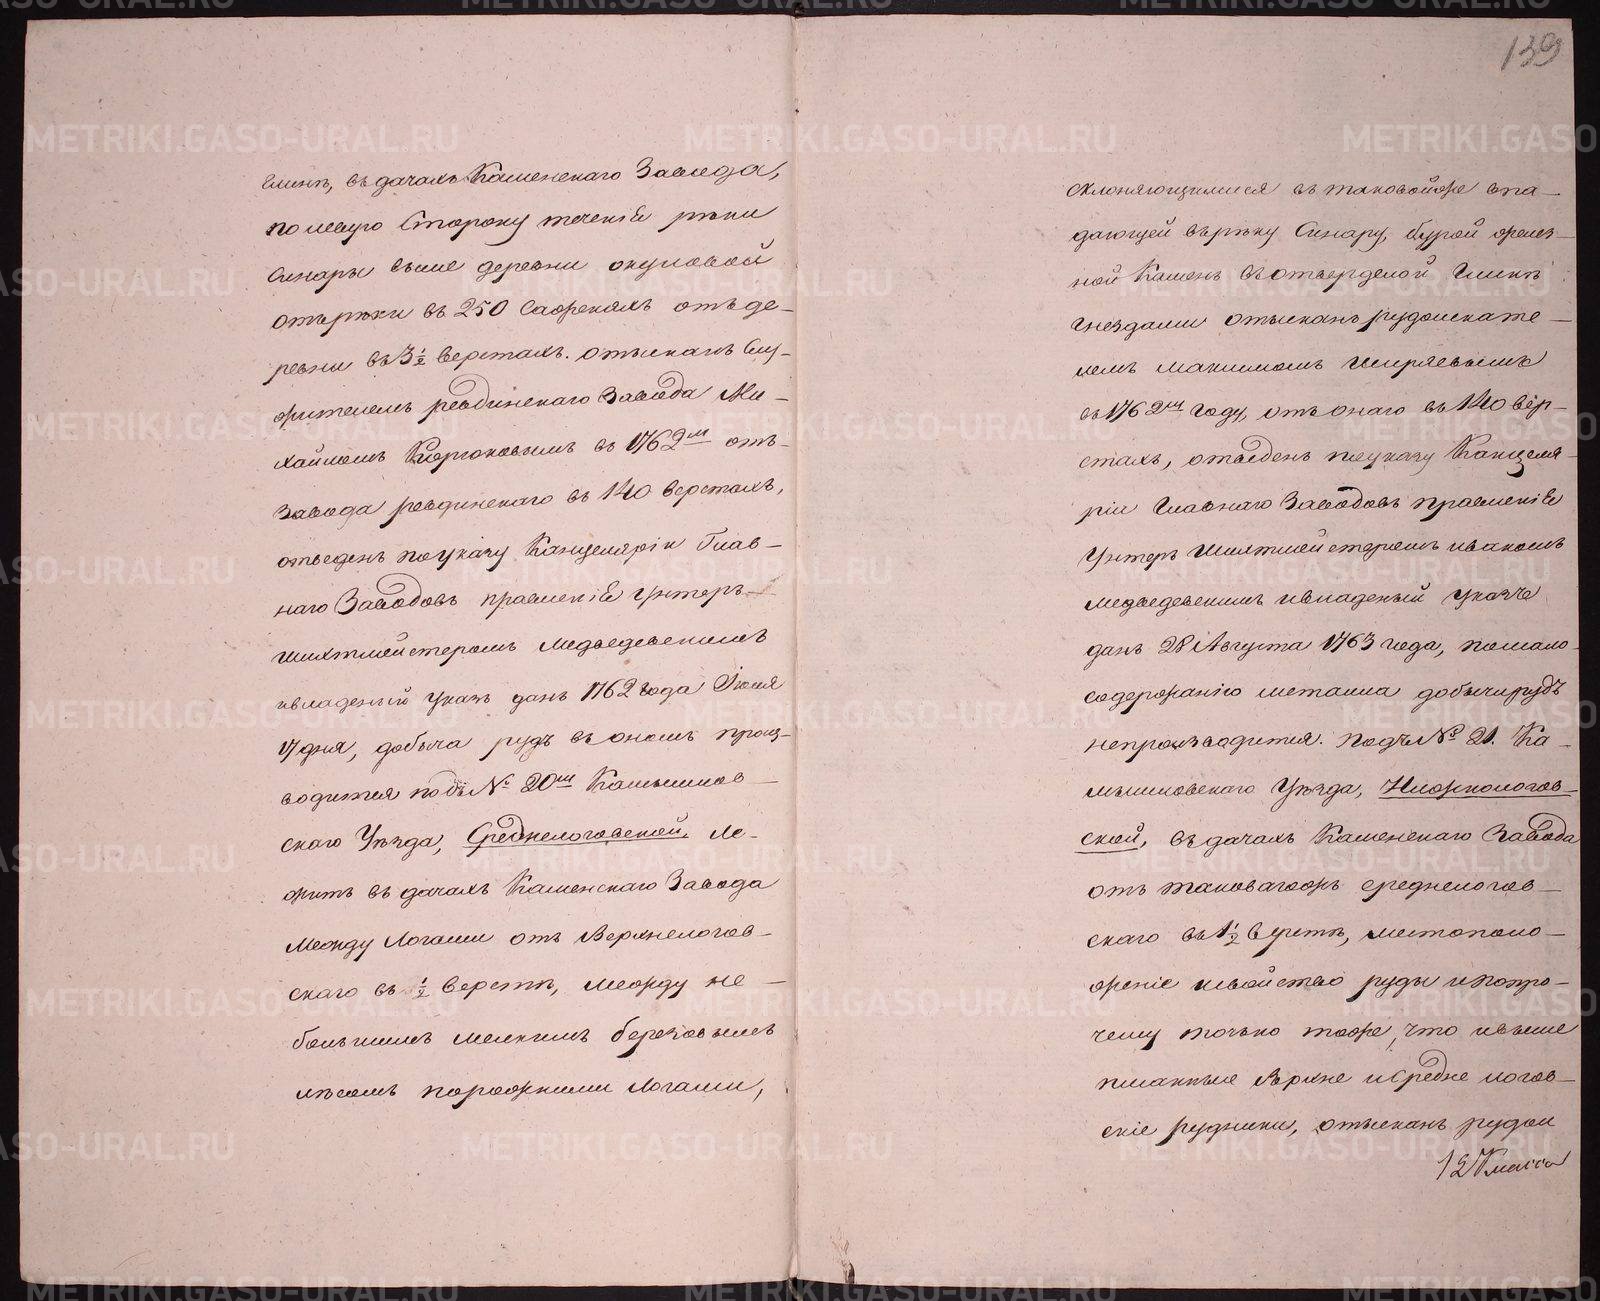 139
глинѣ, въ дачахъ Каменскаго Завода,
по левую сторону теченiя рѣки
Синары выше деревни окуловой
отърѣки въ 250 Саженяхъ отъ де-
ревни въ 3½ верстахъ. отысканъ Слу-
жителемъ ревдинскаго Завода Ми-
хайломъ въ 1762м отъ
Завода ревдинскаго въ 140 верстахъ,
отведенъ поуказу Канцелярiи Глав-
наго Заводовъ правленiя Унтеръ-
шихтмейстеромъ Медведевскимъ
ивладеный указъ данъ 1762 года Iюля
17 дня, добыча рудъ въ ономъ произ-
водится подъ № 20м Камышлов-
скаго Уѣзда, Среднелоговской, Ле-
житъ въ дачахъ Каменскаго Завода
Между Логами отъ Верхнелогов-
скаго въ ½ верстѣ, между не-
большимъ мелкимъ березовымъ
лѣсомъ порожними Логами,
склоняющимися въ таковойже впа-
дающей върѣку Синару, бурой желез-
ной Камень въотверделой глинѣ
гнездами отысканъ рудоискате-
лемъ Максимомъ Ширяевымъ
въ 1762м году, отъ онаго въ 140 вер-
стахъ, отведенъ поуказу Канцеля-
рiи Главнаго Заводовъ правленiя
Унтеръ Шихтмейстеромъ иваномъ
Медведевскимъ ивладеный указъ
данъ 28 Августа 1763 года, помало-
содержанiю металла добычирудъ
непроизводится. Подъ № 21. Ка-
мышловскаго Уѣзда, Нижнелогов-
ской, въ дачахъ Каменскаго Завода
отъ таковагожъ среднелогов-
скаго въ 1½ верстѣ, местополо-
женiе исвойство руды ипотро-
чему точько тоже, что ивыше
писанные Верхне иСредне логов-
скiе рудники, отысканъ рудои
12 Класса